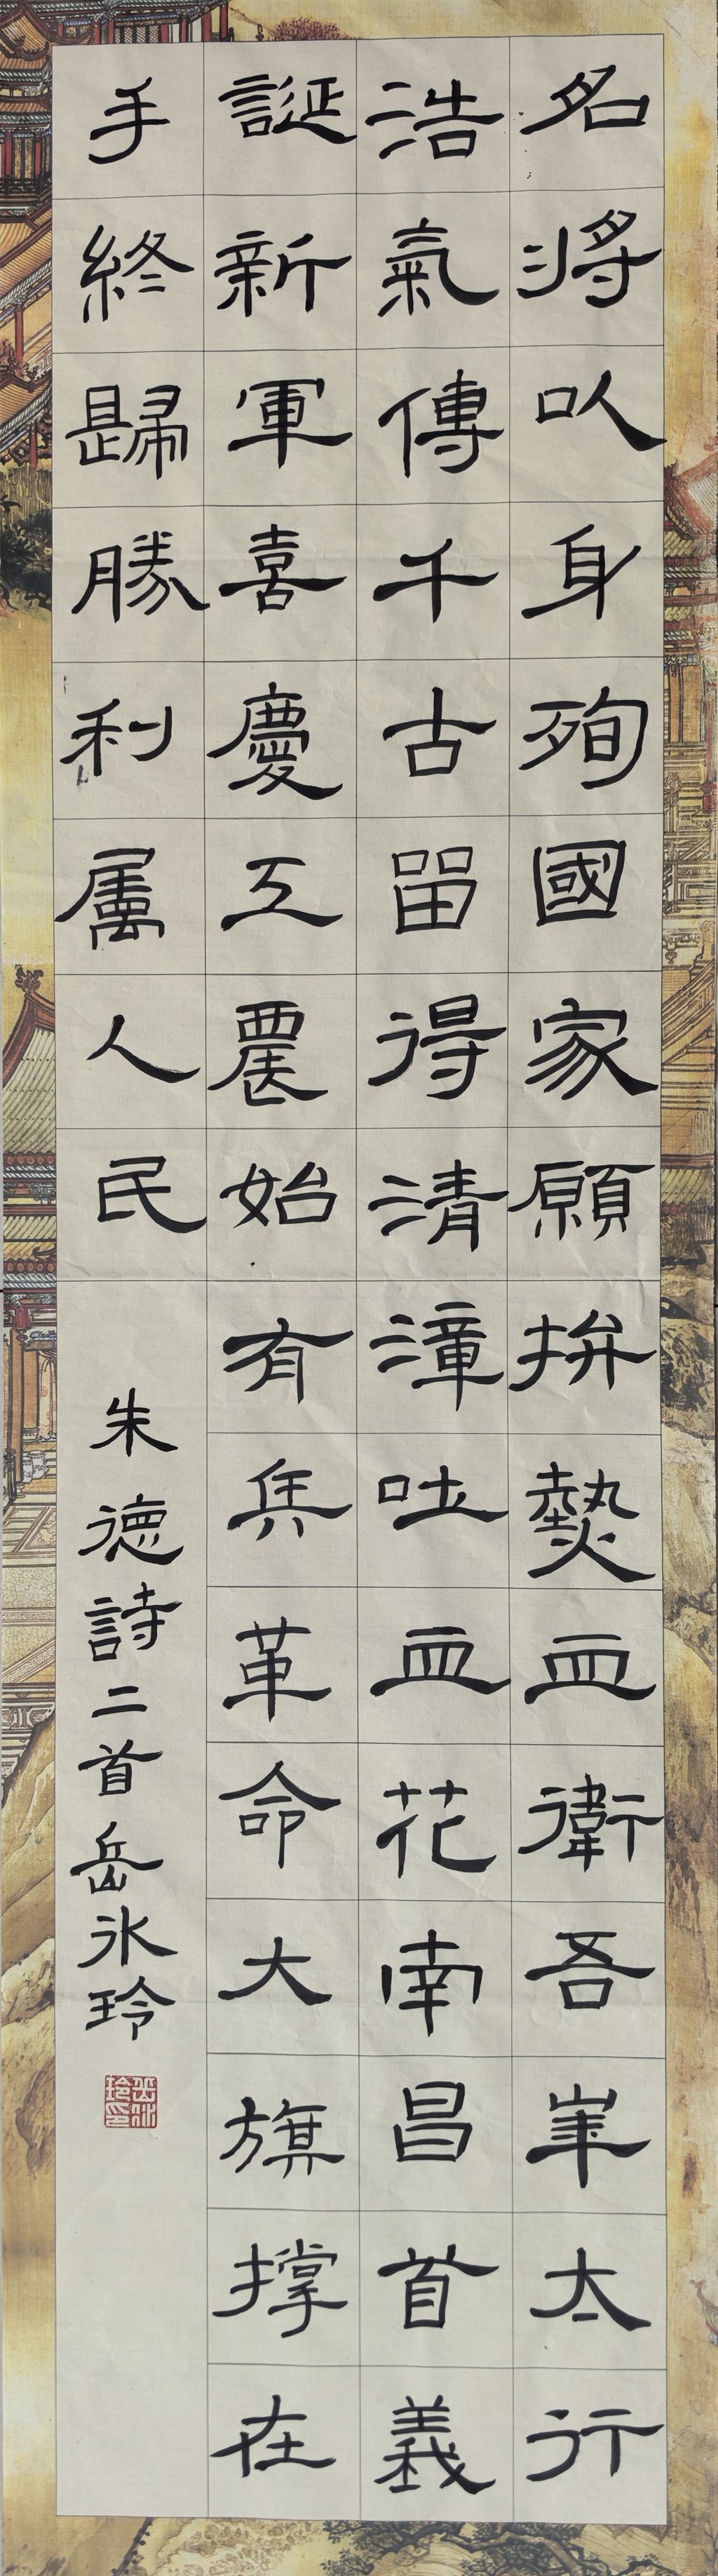 名將㕥身殉國家願拚熱血衛吾峯太行
浩氣傳千古留得清漳吐血花南昌首義
誕新軍喜慶工農始有兵革命大旗撐在
手終歸勝利屬人民
朱德詩二首岳冰玲
岳冰玲印